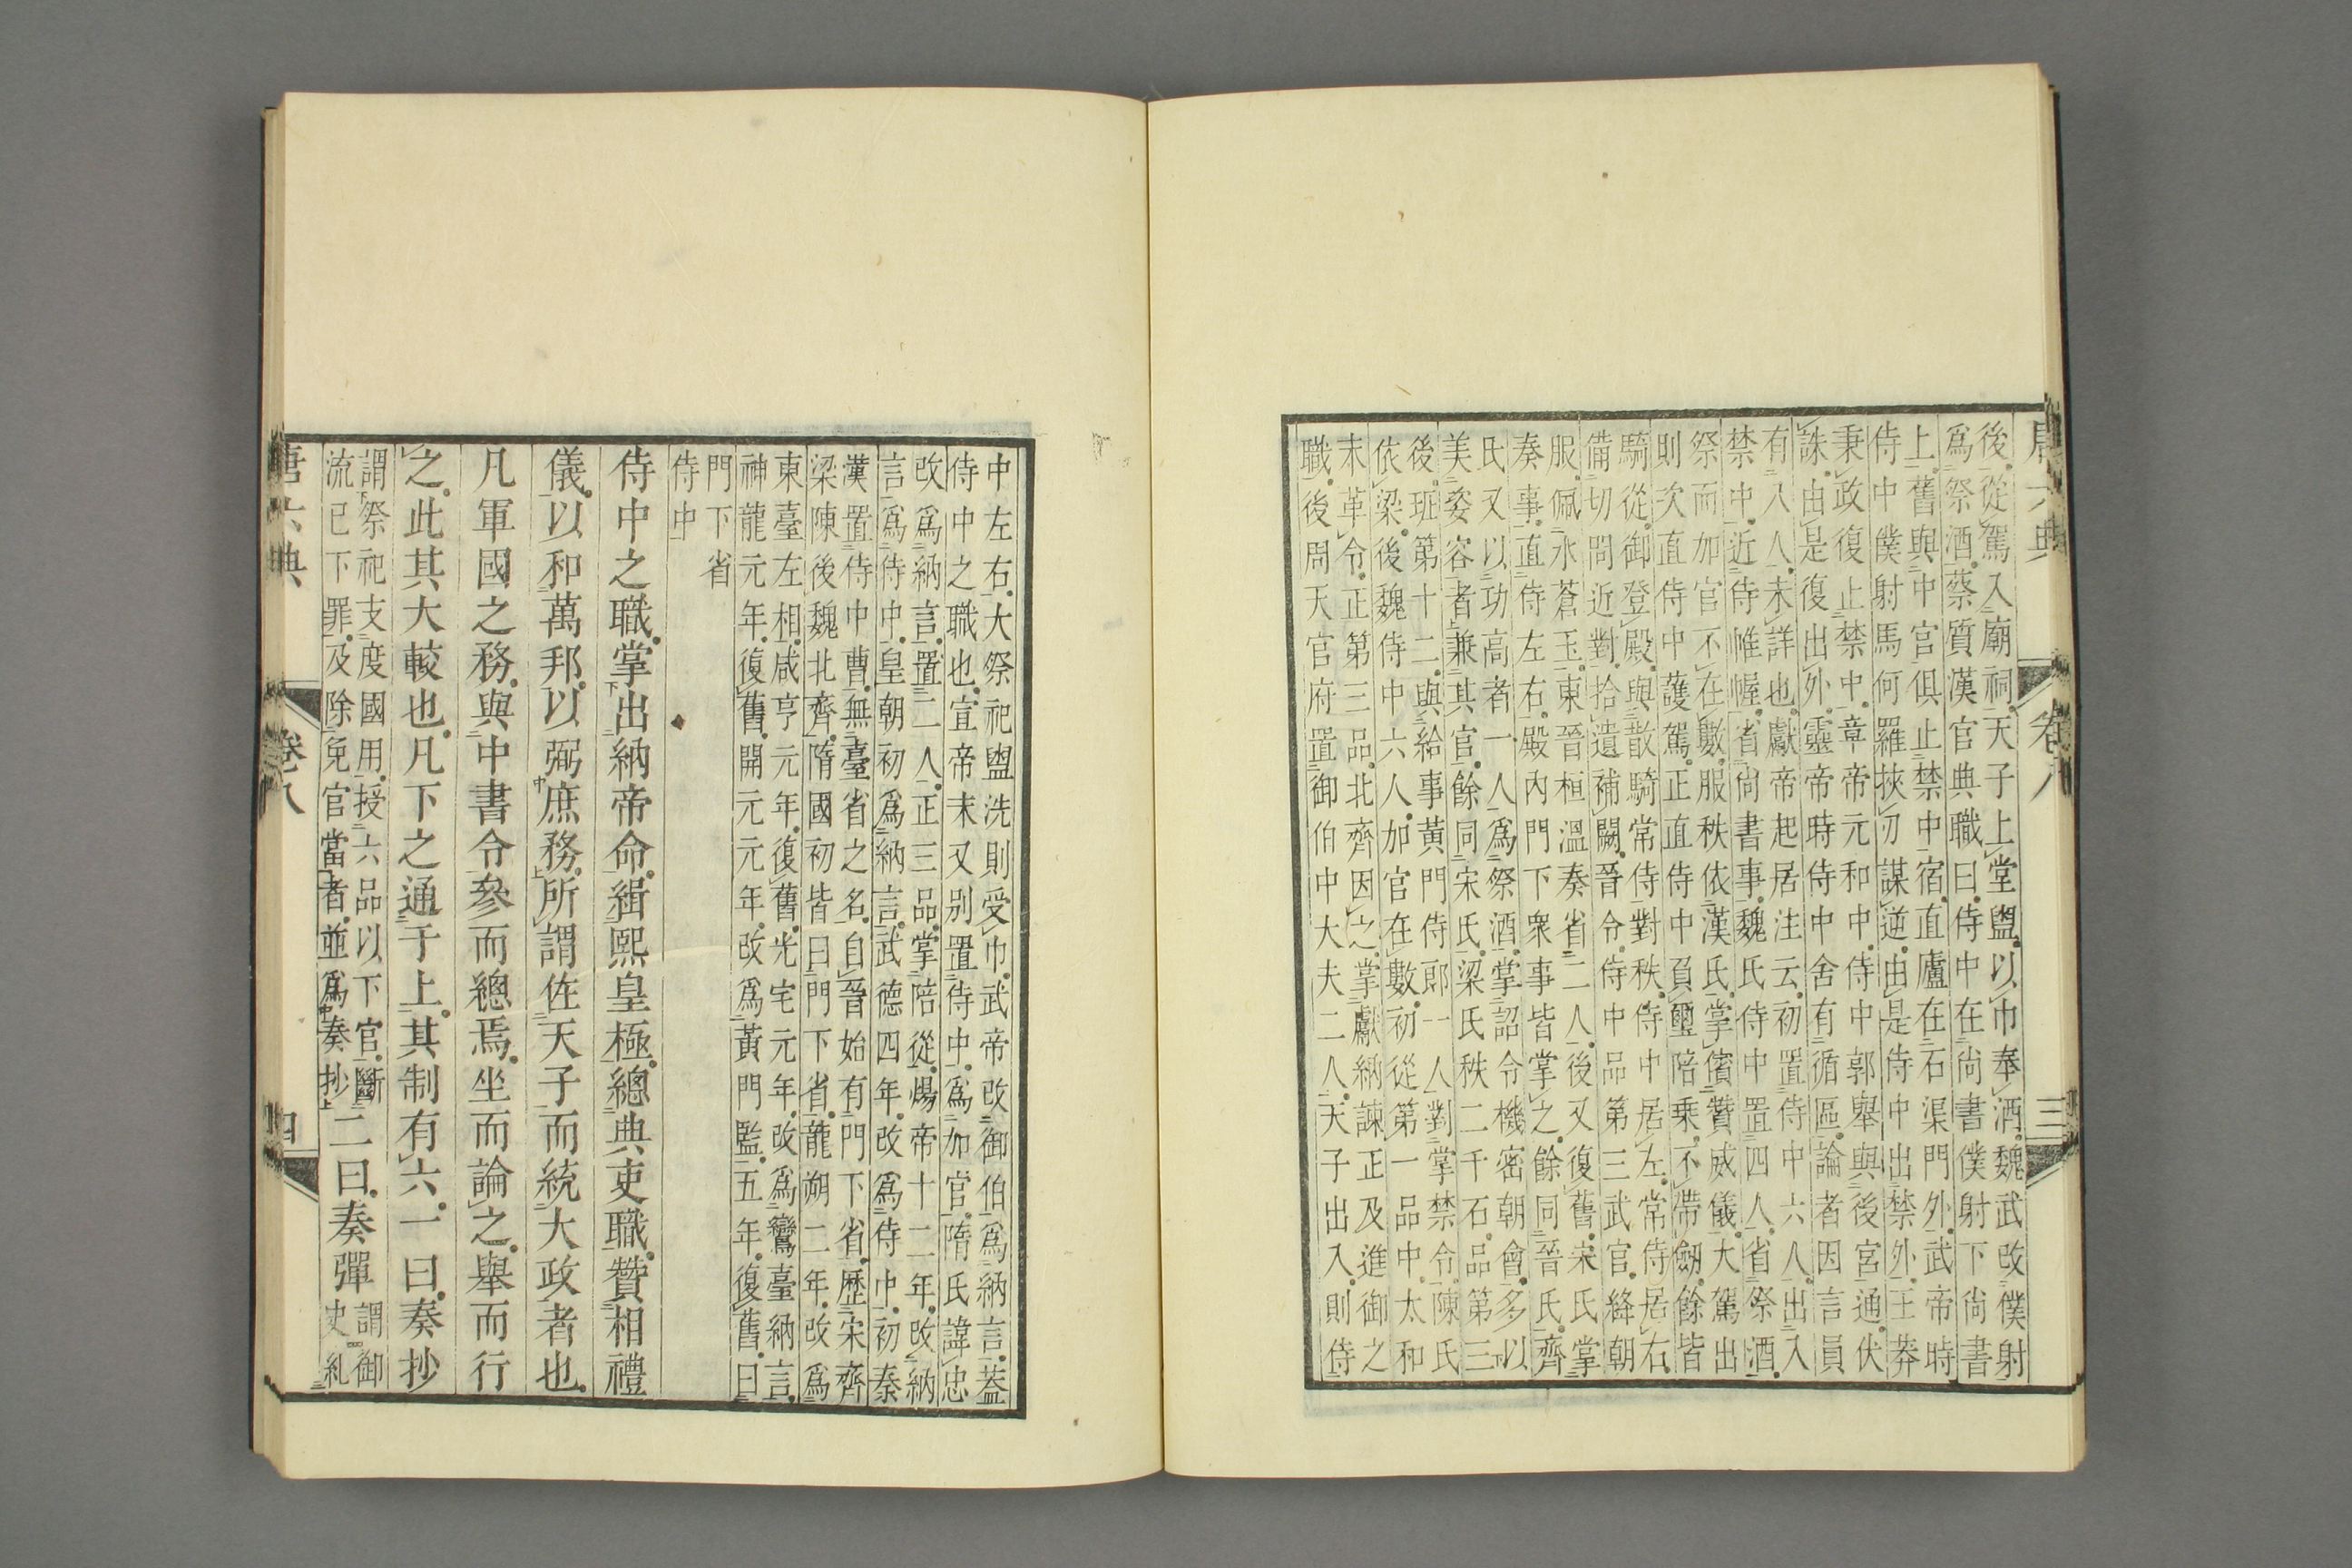 唐六典 卷八 三
後從駕入廟祠天子上堂盥以巾奉酒魏武改僕射
爲祭酒蔡質漢官典職曰侍中在尙書僕射下尙書
上舊與中官俱止禁中宿直廬在石渠門外武帝時
侍中僕射馬何羅挾刃謀逆由是侍中出禁外王莽
秉政復止禁中章帝元和中侍中郭舉與後宮通伏
誅由是復出外靈帝時侍中舍有循區論者因言員
有八人未詳也獻帝起居注云初置侍中六人出入
禁中近侍帷幄省尙書事魏氏侍中置四人省祭酒
祭而加官不在數服秩依漢氏掌儐贊威儀大駕出
則次直侍中護駕正直侍中負璽陪乘不帶劒餘皆
騎從御登殿與散騎常侍對秩侍中居左常侍居右
備切問近對拾遺補闕晉令侍中品第三武官絳朝
服佩水蒼玉東晉桓溫奏省二人後又復舊宋氏掌
奏事直侍左右殿內門下衆事皆掌之餘同晉氏齊
氏又以功高者一人爲祭酒掌詔令機密朝會多以
美姿容者兼其官餘同宋氏梁氏秩二千石品第三
後班第十二與給事黃門侍郎一人對掌禁令陳氏
依梁後魏侍中六人加官在數初從第一品中太和
末革令正第三品北齊因之掌獻納諫正及進御之
職後周天官府置御伯中大夫二人天子出入則侍
中左右大祭祀盥洗則受巾武帝改御伯爲納言蓋
侍中之職也宣帝末又別置侍中爲加官隋氏諱忠
改爲納言置二人正三品掌陪從煬帝十二年改納
言爲侍中皇朝初爲納言武德四年改爲侍中初秦
漢置侍中曹無臺省之名自晉始有門下省歷宋齊
梁陳後魏北齊隋國初皆曰門下省龍朔二年改爲
東臺左相咸亨元年復舊光宅元年改爲鸞臺納言
神龍元年復舊開元元年改爲黃門監五年復舊曰
門下省
侍中
侍中之職掌出納帝命緝熙皇極總典吏職贊相禮
儀以和萬邦以弼庶務所謂佐天子而統大政者也
凡軍國之務與中書令參而總焉坐而論之舉而行
之此其大較也凡下之通于上其制有六一曰奏抄
謂祭祀支度國用授六品以下官斷
流已下罪及除免官當者並爲奏抄
二曰奏彈
謂御
史糺
唐六典 卷八 四